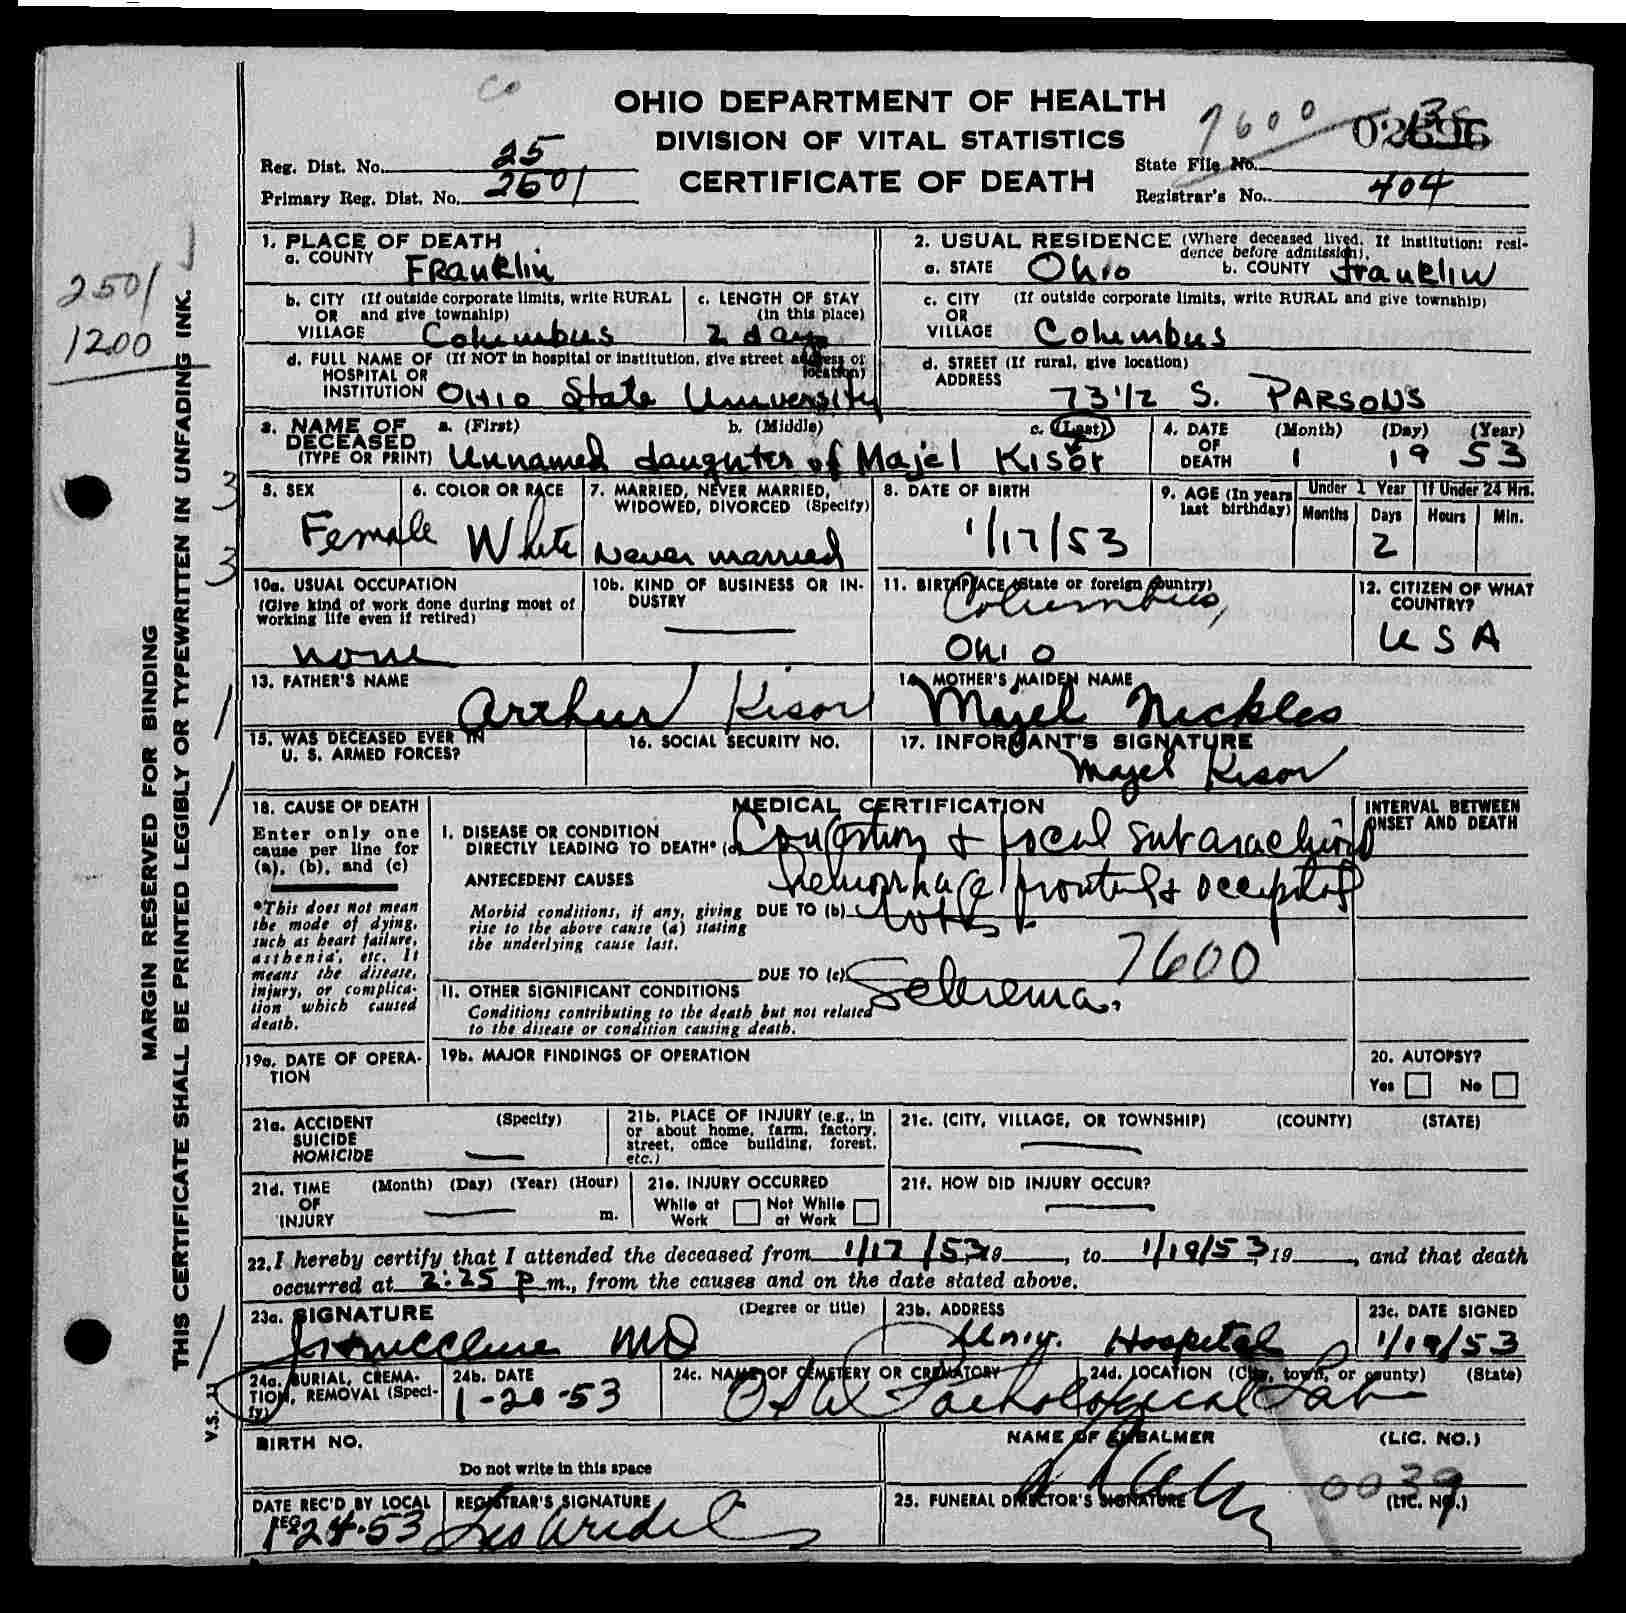 Co
OHIO DEPARTMENT OF HEALTH
DIVISION OF VITAL STATISTICS
CERTIFICATE OF DEATH
Reg. Dist. No. 25
Primary Reg. Dist. No. 2501
7600
State File No.
Registrar's No. 404
2501
1200
MARGIN RESERVED FOR BINDING
THIS CERTIFICATE SHALL BE PRINTED LEGIBLY OR TYPEWRITTEN IN UNFADING INK.
V.S. 11
1. PLACE OF DEATH
a. COUNTY Franklin
b. CITY (If outside corporate limits, write RURAL
OR and give township)
VILLAGE Columbus
c. LENGTH OF STAY
(in this place)
2 days
d. FULL NAME OF (If NOT in hospital or institution, give street address or
location)
HOSPITAL OR
INSTITUTION Ohio State University
2. USUAL RESIDENCE (Where deceased lived. If institution: resi-
dence before admission).
a. STATE Ohio b. COUNTY Franklin
c. CITY (If outside corporate limits, write RURAL and give township)
OR
VILLAGE Columbus
d. STREET (If rural, give location)
ADDRESS
73 1/2 S. PARSONS
3. NAME OF a. (First) b. (Middle) c. (Last)
DECEASED
(TYPE OR PRINT) Unnamed daughter of Majel Kisor
4. DATE (Month) (Day) (Year)
OF
DEATH 1 19 53
5. SEX
Female
6. COLOR OR RACE
White
7. MARRIED, NEVER MARRIED,
WIDOWED, DIVORCED (Specify)
Never married
8. DATE OF BIRTH
1/17/53
9. AGE (In years
last birthday)
Under 1 Year
Months Days
2
If Under 24 Hrs.
Hours Min.
10a. USUAL OCCUPATION
(Give kind of work done during most of
working life even if retired)
none
10b. KIND OF BUSINESS OR IN-
DUSTRY
11. BIRTHPLACE (State or foreign country)
Columbus,
Ohio
12. CITIZEN OF WHAT
COUNTRY?
USA
13. FATHER'S NAME
Arthur Kisor
14. MOTHER'S MAIDEN NAME
Majel Nickles
15. WAS DECEASED EVER IN
U. S. ARMED FORCES?
16. SOCIAL SECURITY NO.
17. INFORMANT'S SIGNATURE
Majel Kisor
18. CAUSE OF DEATH
Enter only one
cause per line for
(a), (b), and (c)
*This does not mean
the mode of dying,
such as heart failure,
asthenia, etc. It
means the disease,
injury, or complica-
tion which caused
death.
MEDICAL CERTIFICATION
I. DISEASE OR CONDITION
DIRECTLY LEADING TO DEATH* (a) Congestion & focal subarachnoid
ANTECEDENT CAUSES hemorrhage frontal & occipital
Morbid conditions, if any, giving
rise to the above cause (a) stating
the underlying cause last.
DUE TO (b)
DUE TO (c)
7600
II. OTHER SIGNIFICANT CONDITIONS
Conditions contributing to the death but not related
to the disease or condition causing death.
Sclerema.
INTERVAL BETWEEN
ONSET AND DEATH
19a. DATE OF OPERA-
TION
19b. MAJOR FINDINGS OF OPERATION
20. AUTOPSY?
Yes No
21a. ACCIDENT (Specify)
SUICIDE
HOMICIDE
21b. PLACE OF INJURY (e.g., in
or about home, farm, factory,
street, office building, forest,
etc.)
21c. (CITY, VILLAGE, OR TOWNSHIP) (COUNTY) (STATE)
21d. TIME (Month) (Day) (Year) (Hour)
OF
INJURY m.
21e. INJURY OCCURRED
While at Work Not While at Work
21f. HOW DID INJURY OCCUR?
22. I hereby certify that I attended the deceased from 1/17/53, 19, to 1/19/53, 19, and that death
occurred at 2:25 p m., from the causes and on the date stated above.
23a. SIGNATURE (Degree or title)
McClure MD
23b. ADDRESS
Univ. Hospital
23c. DATE SIGNED
1/19/53
24a. BURIAL, CREMA-
TION, REMOVAL (Speci-
fy)
24b. DATE
1-20-53
24c. NAME OF CEMETERY OR CREMATORY
OSU Pathological Lab
24d. LOCATION (City, town, or county) (State)
BIRTH NO.
Do not write in this space
NAME OF EMBALMER (LIC. NO.)
DATE REC'D BY LOCAL
REG.
1-24-53
REGISTRAR'S SIGNATURE
25. FUNERAL DIRECTOR'S SIGNATURE (LIC. NO.)
0039